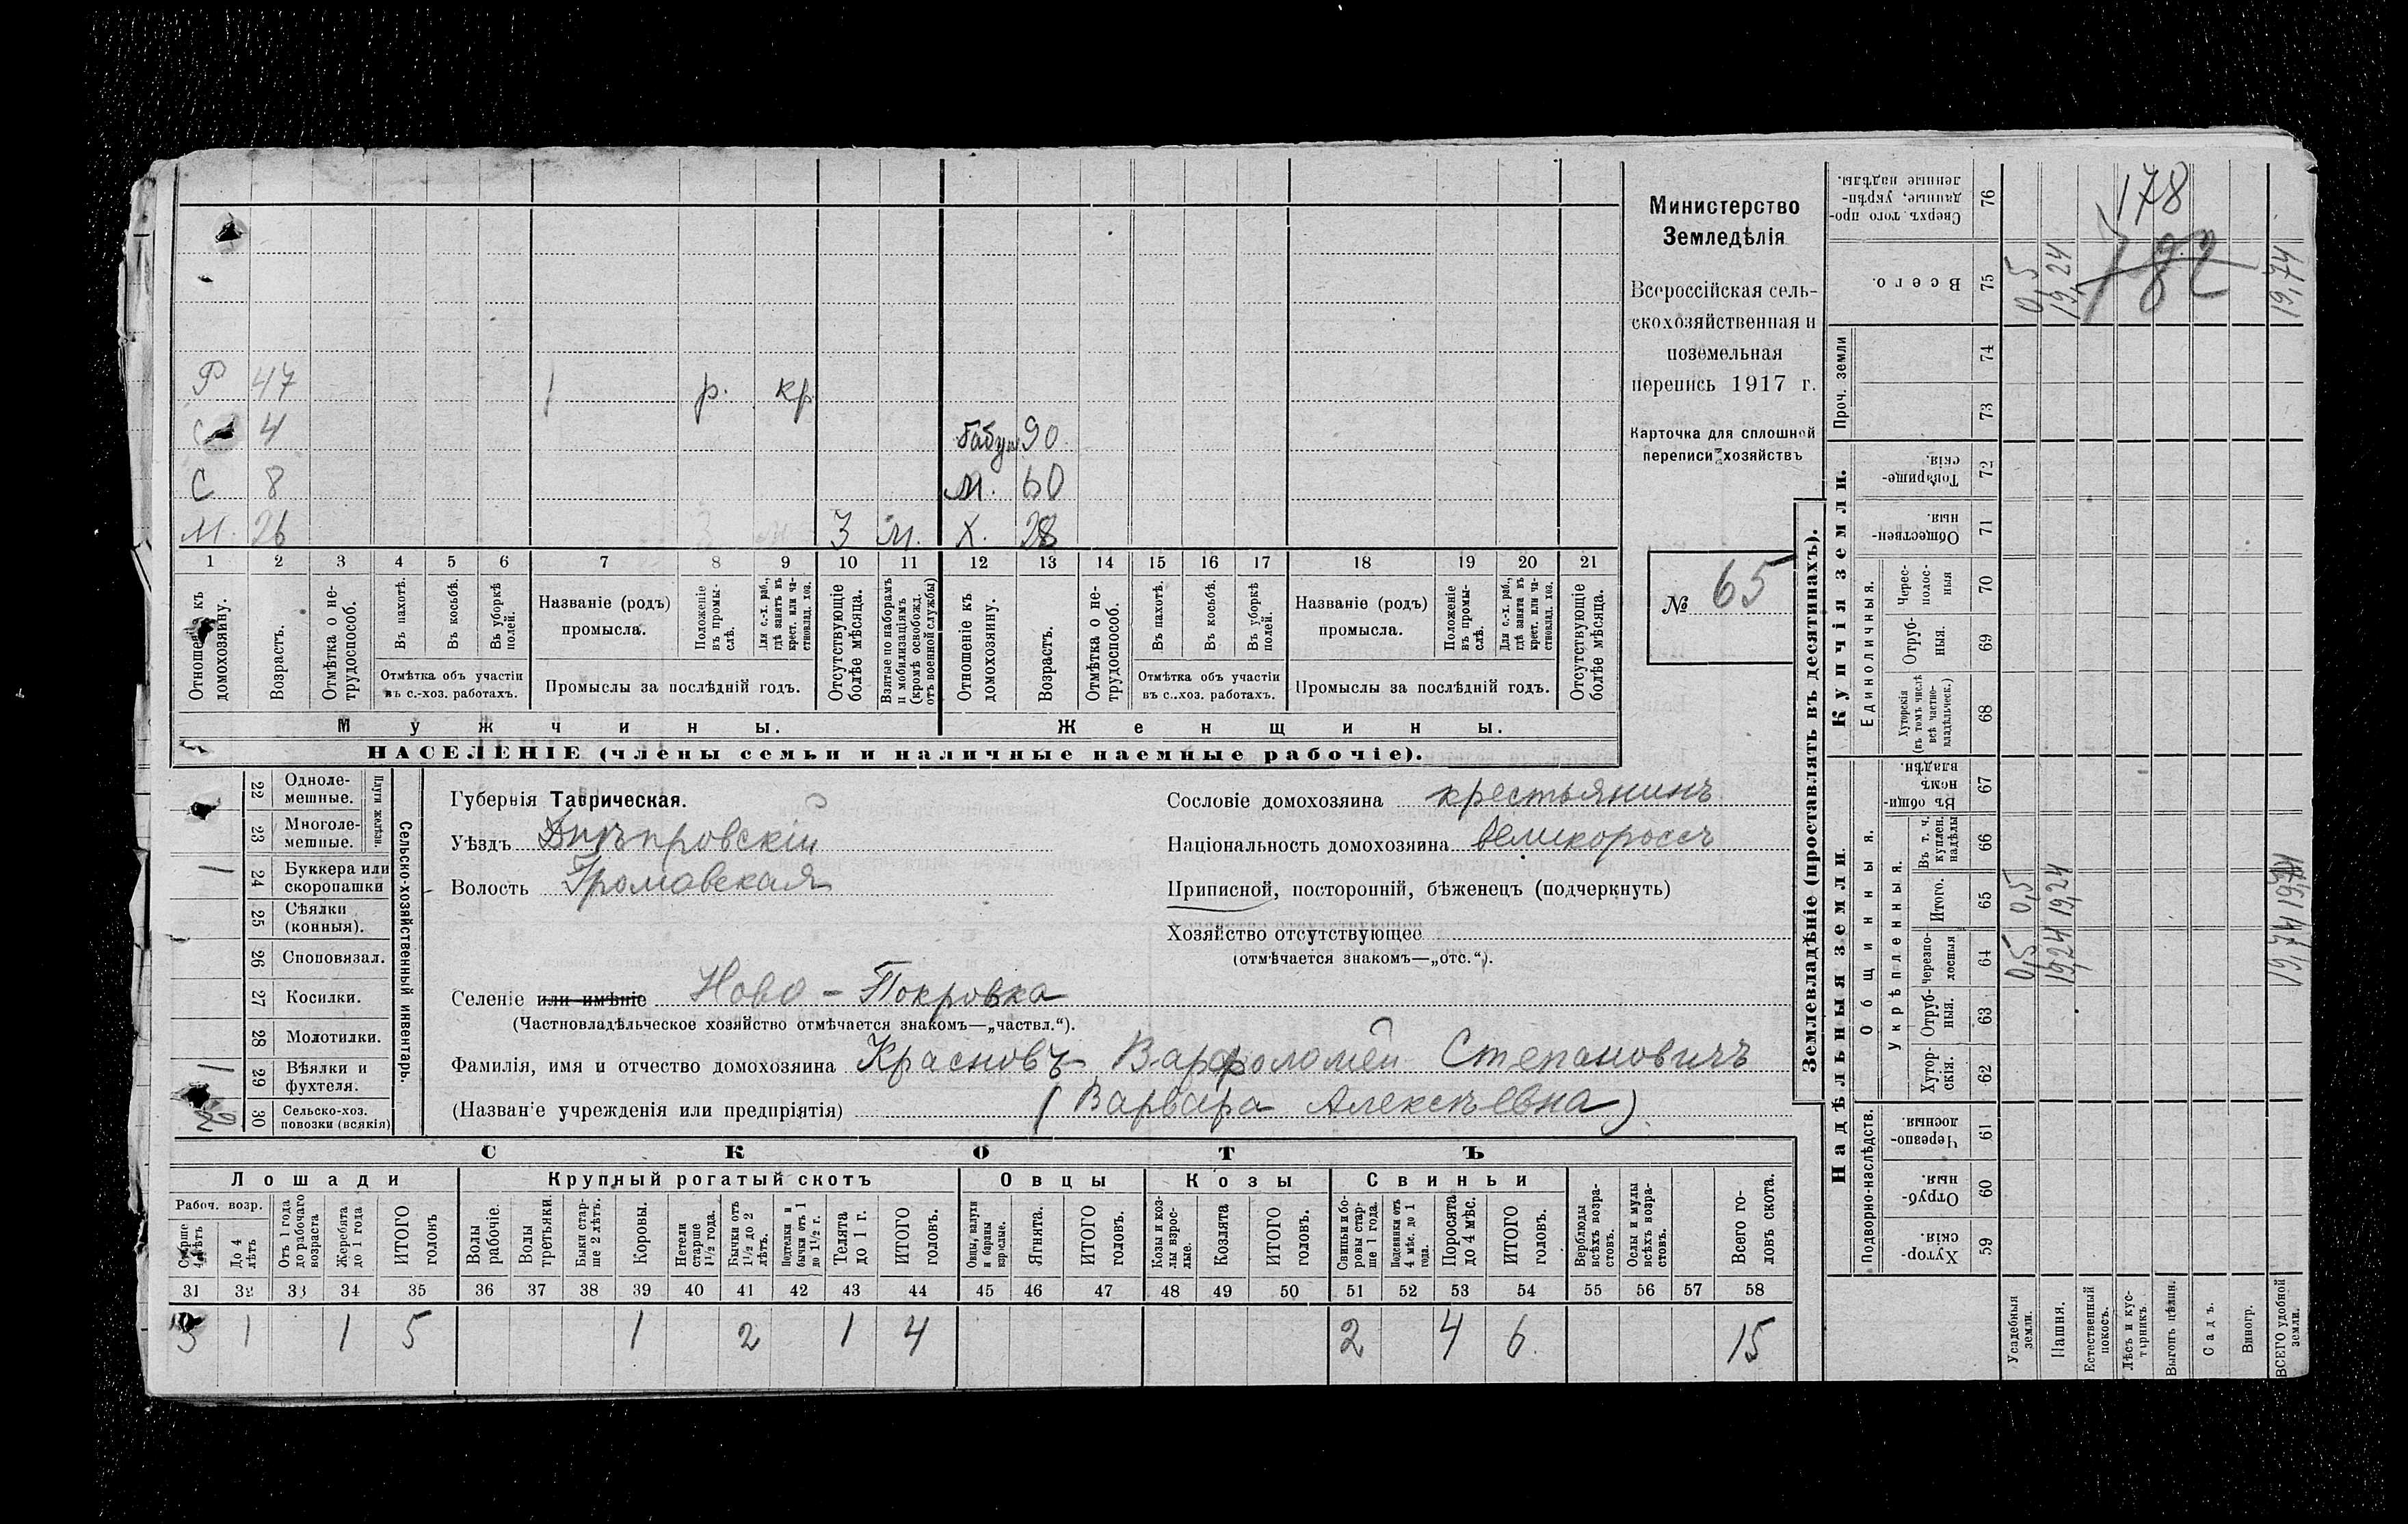 Министерство
Земледѣлія
Всероссійская сель-
скохозяйственная и
поземельная
перепись 1917 г.
Карточка для сплошной
переписи хозяйствъ
№ 65
178
782
Р 47 1 р. кр
С 4
90
С 8 М. 60
М. 26 З М. Х. 28
1 2 3 4 5 6 7 8 9 10 11 12 13 14 15 16 17 18 19 20 21
Отношеніе къ домохозяину.
Возрастъ.
Отмѣтка о не-трудоспособ.
Въ пахотѣ.
Въ косьбѣ.
Въ уборкѣ полей.
Отмѣтка объ участіи
въ с.-хоз. работахъ.
Названіе (родъ)
промысла.
Положеніе въ промы-слѣ.
Для с.-х. раб., гдѣ занятъ въ крест. или ча-стновлад. хоз.
Промыслы за послѣдній годъ.
Отсутствующіе болѣе мѣсяца.
Взятые по наборамъ и мобилизаціямъ (кромѣ освобожд. отъ военной службы)
Отношеніе къ домохозяину.
Возрастъ.
Отмѣтка о не-трудоспособ.
Въ пахотѣ.
Въ косьбѣ.
Въ уборкѣ полей.
Отмѣтка объ участіи
въ с..хоз. работахъ.
Названіе (родъ)
промысла.
Положеніе въ промы-слѣ.
Для с.-х. раб., гдѣ занята въ крест. или ча-стновлад. хоз.
Промыслы за послѣдній годъ.
Отсутствующіе болѣе мѣсяца.
Мужчины. Женщины.
НАСЕЛЕНІЕ (члены семьи и наличные наемные рабочіе).
Сельско-хозяйственный инвентарь.
Плуги желѣзн.
22 Одноле-мешные.
23 Многоле-мешные.
1 24 Буккера или скоропашки
25 Сѣялки (конныя).
26 Сноповязал.
27 Косилки.
28 Молотилки.
1 29 Вѣялки и фухтеля.
30 Сельско-хоз. повозки (всякія)
Губернія Таврическая.
Уѣздъ Днѣпровскій
Волость Громовская
Сословіе домохозяина крестьянинъ
Національность домохозяина великороссъ
Приписной, посторонній, бѣженецъ (подчеркнуть)
Хозяйство отсутствующее
(отмѣчается знакомъ—„отс.“).
Селеніе или имѣніе Ново - Покровка
(Частновладѣльческое хозяйство отмѣчается знакомъ—„частвл.“).
Фамилія, имя и отчество домохозяина Красновъ Варфоломей Степановичъ
(Названіе учрежденія или предпріятія) (Варвара Алексѣевна)
СКОТЪ
Лошади Крупный рогатый скотъ Овцы Козы Свиньи
Рабоч. возр.
Старше 4 лѣтъ
До 4 лѣтъ
Отъ 1 года до рабочаго возраста
Жеребята до 1 года
ИТОГО головъ
Волы рабочіе.
Волы третьяки.
Быки стар-ше 2 лѣтъ.
Коровы.
Нетели старше 1½ года.
Бычки отъ 1½ до 2 лѣтъ.
Подтелки и бычки отъ 1 до 1½ г.
Телята до 1 г.
ИТОГО головъ.
Овцы, валухи и бараны взрослые.
Ягнята.
ИТОГО головъ.
Козы и коз-лы взрос-лые.
Козлята
ИТОГО головъ.
Свиньи и бо-ровы стар-ше 1 года.
Подсвинки отъ 4 мѣс. до 1 года.
Поросята до 4 мѣс.
ИТОГО головъ.
Верблюды всѣхъ возра-стовъ.
Ослы и мулы всѣхъ возра-стовъ.
Всего го-ловъ скота.
31 32 33 34 35 36 37 38 39 40 41 42 43 44 45 46 47 48 49 50 51 52 53 54 55 56 57 58
3 1 1 5 1 2 1 4 2 4 6 15
Землевладѣніе (проставлять въ десятинахъ).
Купчія земли.
Надѣльныя земли
Сверхъ того про-данные, укрѣп-ленные надѣлы. 76
Всего. 75 0,5 19,24 19,74
Проч. земли 74 73
Товарище-скія. 72
Обществен-ныя. 71
Единоличныя.
Черес-полос-ныя 70
Отруб-ныя. 69
Хуторскія (въ томъ числѣ всѣ частно-владѣльческ.) 68
Общинныя.
Въ общи-номъ владѣн. 67
Укрѣпленныя.
Въ т. ч. куплен. надѣлы 66
Итого. 65 0,5 19,24 19,74
Черезпо-лосныя 64 0,5 19,24 19,74
Отруб-ныя. 63
Хутор-скія. 62
Подворно-наслѣдств.
Черезпо-лосныя 61
Отруб-ныя. 60
Хутор-скія. 59
Усадебныя земли.
Пашня.
Естественный покосъ.
Лѣсъ и кус-тарникъ
Выгонъ цѣлин.
Садъ.
Виногр.
ВСЕГО удобной земли.